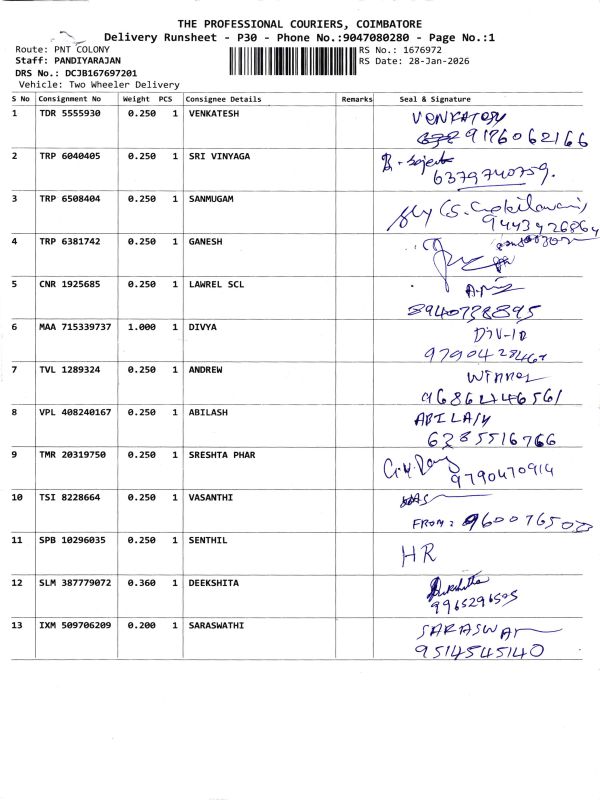 THE PROFESSIONAL COURIERS, COIMBATORE
Delivery Runsheet - P30 - Phone No.:9047080280 - Page No.:1
Route: PNT COLONY RS No.: 1676972
Staff: PANDIYARAJAN RS Date: 28-Jan-2026
DRS No.: DCJB167697201
Vehicle: Two Wheeler Delivery
S No Consignment No Weight PCS Consignee Details Remarks Seal & Signature
1 TDR 5555930 0.250 1 VENKATESH VENKATESH
9176062166
2 TRP 6040405 0.250 1 SRI VINYAGA
6379740759.
3 TRP 6508404 0.250 1 SANMUGAM
9443426864
4 TRP 6381742 0.250 1 GANESH
5 CNR 1925685 0.250 1 LAWREL SCL
8940738895
6 MAA 715339737 1.000 1 DIVYA
7 TVL 1289324 0.250 1 ANDREW
8 VPL 408240167 0.250 1 ABILASH ABILASH
6285516766
9 TMR 20319750 0.250 1 SRESHTA PHAR
9790470914
10 TSI 8228664 0.250 1 VASANTHI
FROM:
11 SPB 10296035 0.250 1 SENTHIL HR
12 SLM 387779072 0.360 1 DEEKSHITA Dikshitha
9965296595
13 IXM 509706209 0.200 1 SARASWATHI
9514545140